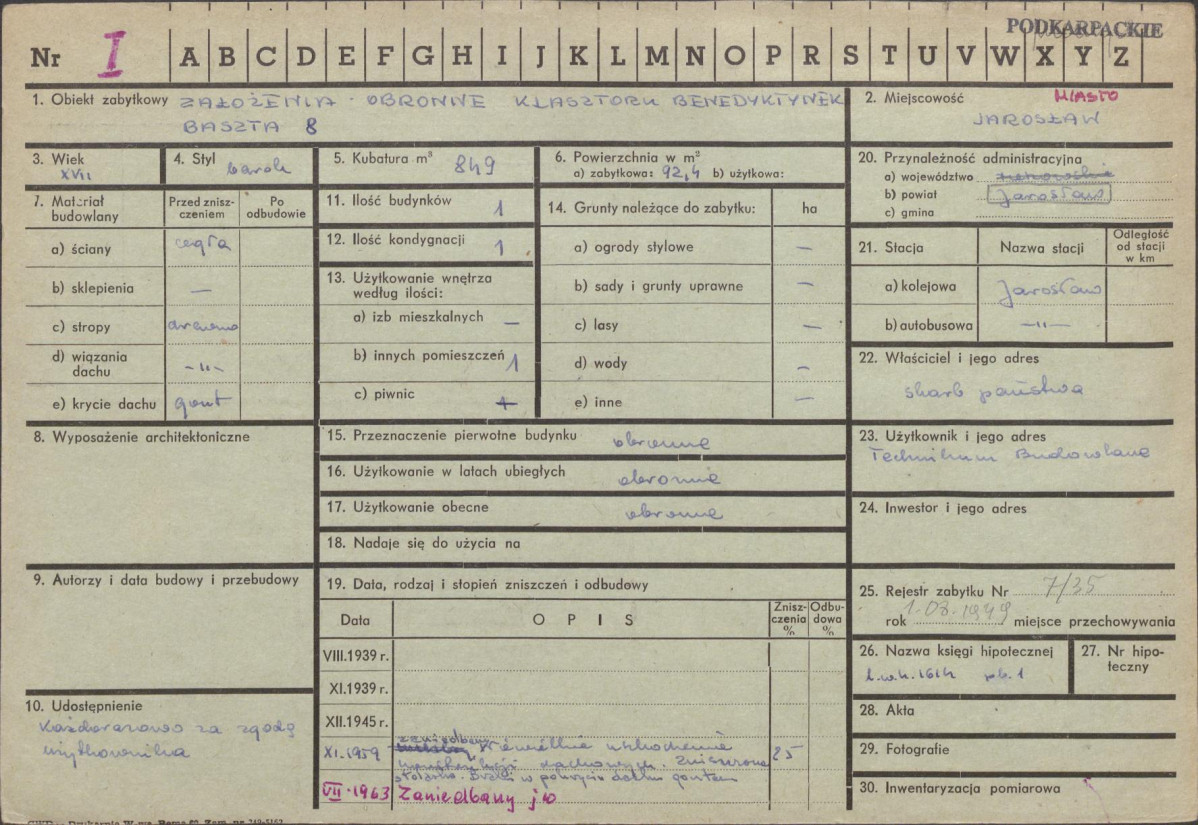 PODKARPACKIE
Nr I A B C D E F G H I J K L M N O P R S T U V W X Y Z
1. Obiekt zabytkowy ZAŁOŻENIA OBRONNE KLASZTORU BENEDYKTYNEK
BASZTA 8
2. Miejscowość MIASTO
JAROSŁAW
3. Wiek
XVII
4. Styl
barok
5. Kubatura m³ 849
6. Powierzchnia w m²
a) zabytkowa: 92,4 b) użytkowa:
20. Przynależność administracyjna
a) województwo
b) powiat Jarosław
c) gmina
7. Materiał budowlany
Przed zniszczeniem
Po odbudowie
a) ściany cegła
b) sklepienia —
c) stropy drewno
d) wiązania dachu -„-
e) krycie dachu gont
11. Ilość budynków 1
12. Ilość kondygnacji 1
13. Użytkowanie wnętrza
według ilości:
a) izb mieszkalnych —
b) innych pomieszczeń 1
c) piwnic
14. Grunty należące do zabytku: ha
a) ogrody stylowe —
b) sady i grunty uprawne —
c) lasy —
d) wody —
e) inne —
21. Stacja Nazwa stacji Odległość od stacji w km
a) kolejowa Jarosław
b) autobusowa -„-
22. Właściciel i jego adres
skarb państwa
8. Wyposażenie architektoniczne
15. Przeznaczenie pierwotne budynku obronne
16. Użytkowanie w latach ubiegłych obronne
17. Użytkowanie obecne obronne
18. Nadaje się do użycia na
23. Użytkownik i jego adres
Technikum Budowlane
24. Inwestor i jego adres
9. Autorzy i data budowy i przebudowy
19. Data, rodzaj i stopień zniszczeń i odbudowy
Data OPIS Zniszczenia % Odbudowa %
VIII.1939 r.
XI.1939 r.
XII.1945 r.
XI.1959 zaniedbany
więźby dachowej. Zniszczona 25
stolarka. Braki w pokryciu dachu gontem
VII.1963 Zaniedbany jw
25. Rejestr zabytku Nr 7/35
rok 1.03.1949 miejsce przechowywania
26. Nazwa księgi hipotecznej
l.w.h. 1614 pb. 1
27. Nr hipoteczny
10. Udostępnienie
Każdorazowo za zgodą
użytkownika
28. Akta
29. Fotografie
30. Inwentaryzacja pomiarowa